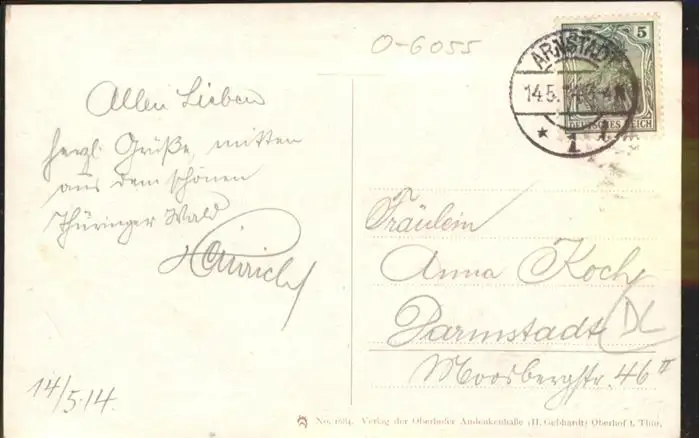 O-6055
Allen Lieben
herzl. Grüße, mitten
aus dem schönen
Thüringer Wald
Heinrich
14/5.14.
5
ARNSTADT
14.5.14
* 1
DEUTSCHES REICH
Fräulein
Anna Koch
Darmstadt
DL
Moosbergstr. 46 II
No. 1684. Verlag der Oberhofer Andenkenhalle (H. Gebhardt) Oberhof i. Thür.